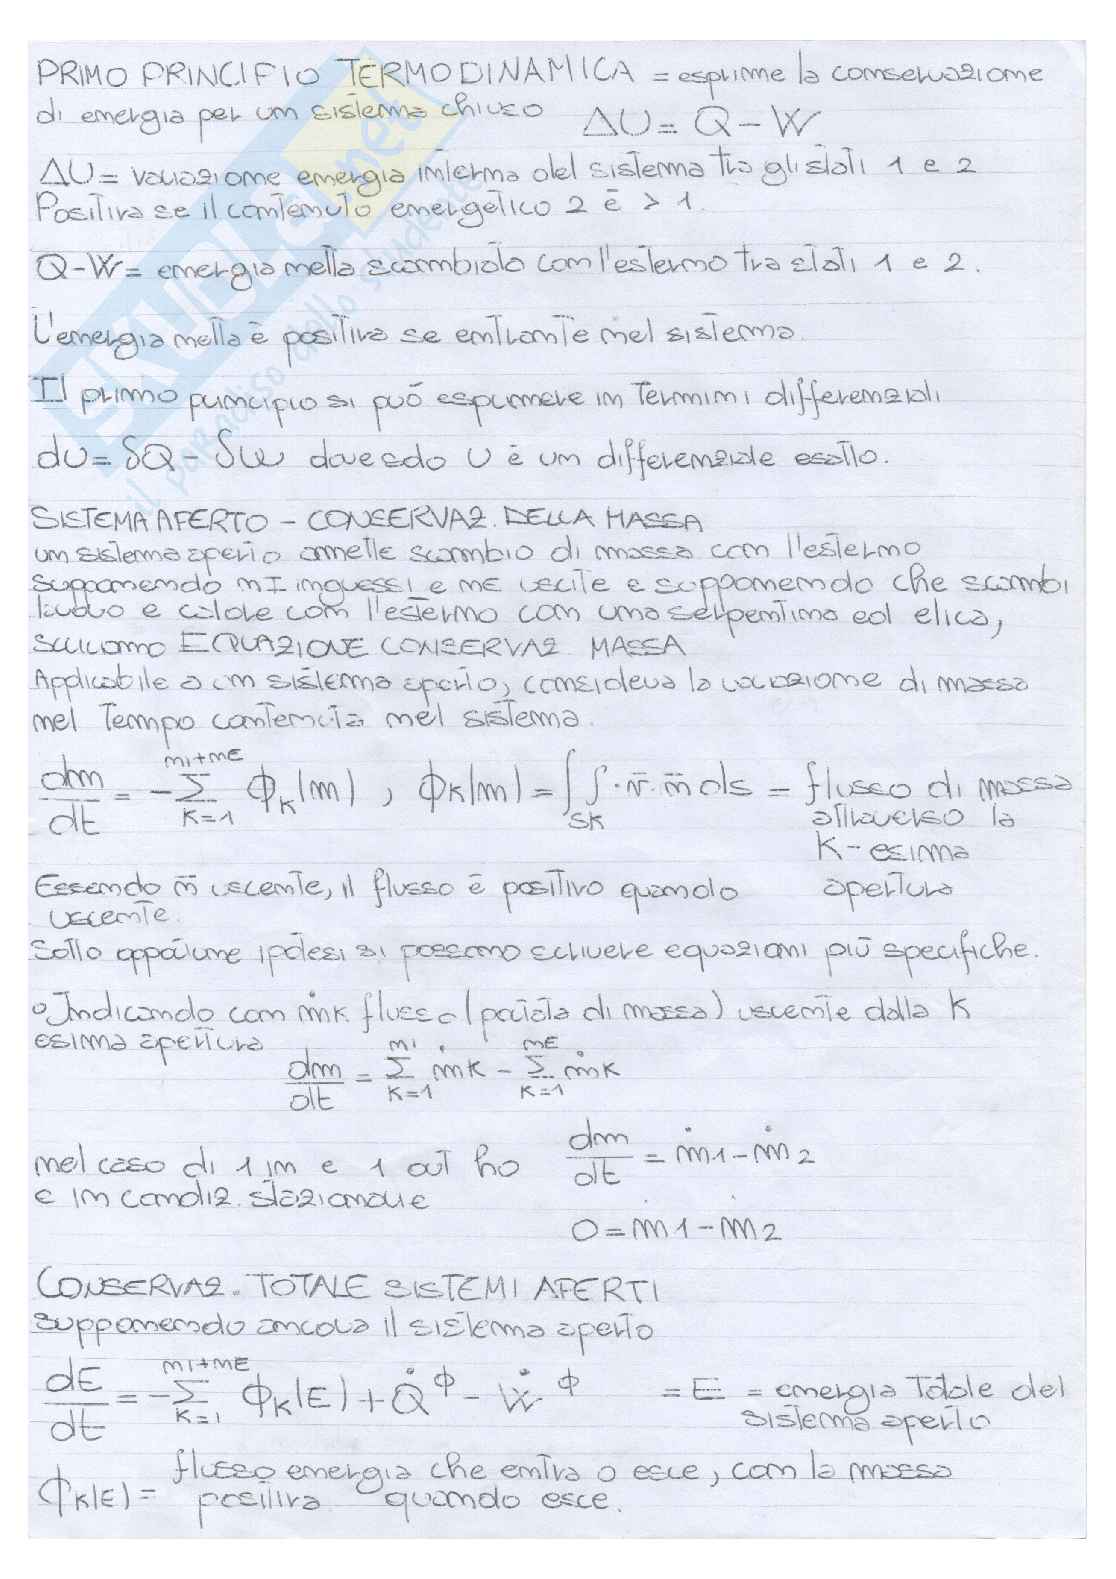 PRIMO PRINCIPIO TERMODINAMICA = esprime la conservazione
di energia per un sistema chiuso ΔU = Q - W
ΔU = variazione energia interna del sistema tra gli stati 1 e 2
Positiva se il contenuto energetico 2 è > 1.
Q-W = energia netta scambiata con l'esterno tra stati 1 e 2.
L'energia netta è positiva se entrante nel sistema.
Il primo principio si può esprimere in termini differenziali
dU = δQ - δW dove solo U è un differenziale esatto.
SISTEMA APERTO - CONSERVAZ. DELLA MASSA
un sistema aperto ammette scambio di massa con l'esterno
supponendo nI ingressi e nE uscite e supponendo che scambi
lavoro e calore con l'esterno con una serpentina ed elica,
scriviamo EQUAZIONE CONSERVAZ MASSA
Applicabile a un sistema aperto, considera la variazione di massa
nel tempo contenuta nel sistema.
dm/dt = - Σ_{K=1}^{nI+nE} ϕ_K(m) , ϕK(m) = ∫∫_{SK} · v̄ · n̄ ds = flusso di massa
attraverso la
K-esima
apertura
Essendo n̄ uscente, il flusso è positivo quando
uscente.
Sotto opportune ipotesi si possono scrivere equazioni più specifiche.
° Indicando con ṁK flusso (portata di massa) uscente dalla K
esima apertura
dm/dt = Σ_{K=1}^{nI} ṁK - Σ_{K=1}^{nE} ṁK
nel caso di 1 in e 1 out ho dm/dt = ṁ1 - ṁ2
e in condiz. stazionarie
0 = ṁ1 - ṁ2
CONSERVAZ. TOTALE SISTEMI APERTI
supponendo ancora il sistema aperto
dE/dt = - Σ_{K=1}^{nI+nE} ϕ_K(E) + Q̇^ϕ - Ẇ^ϕ = E = energia totale del
sistema aperto
ϕK(E) = flusso energia che entra o esce, con la massa
positiva quando esce.
SKUOLA.net
il paradiso dello studente